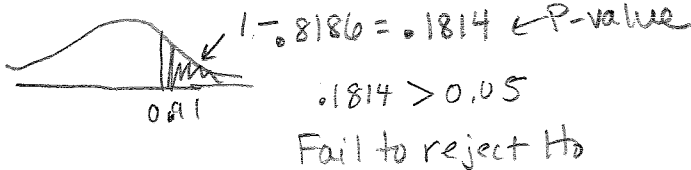 1.-.8186 = .1814 ← P-value
.1814 > 0.05
0.91
Fail to reject Ho